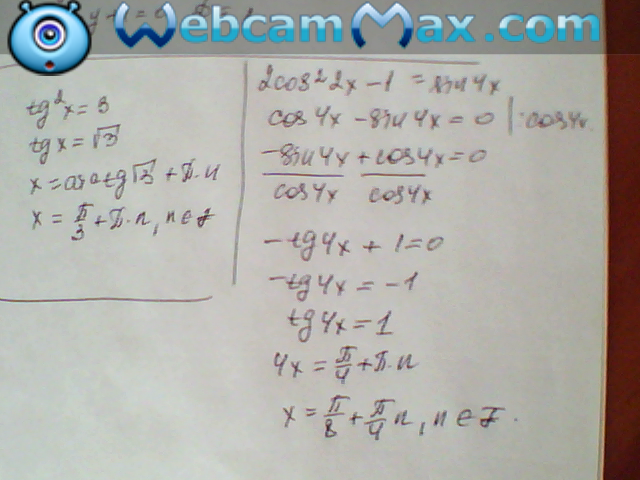 WebcamMax.com
tg²x = 3
tgx = √3
x = arctg√3 + π·n
x = π/3 + π·n, n ∈ Z
2cos²2x - 1 = sin4x
cos4x - sin4x = 0 | :cos4x
-sin4x/cos4x + cos4x/cos4x = 0
-tg4x + 1 = 0
-tg4x = -1
tg4x = 1
4x = π/4 + π·n
x = π/8 + π/4 n, n ∈ Z.